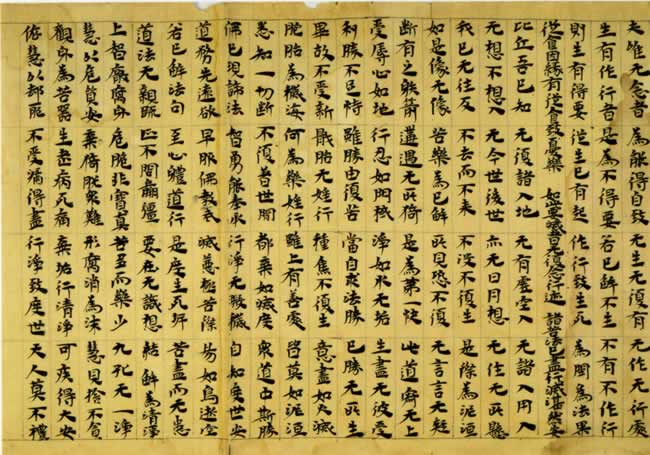 夫唯无念者 為能得自致 无生无復有 无作无行處
生有作行者 是為不得要 若已解不生 不有不作行
則生有得要 從生已有起 作行致生死 為開為法果
從食因緣有 從食致憂樂 而此要滅者 无復念行迹 諸苦法已盡 行滅湛然安
比丘吾已知 无復諸入地 无有虛空入 无諸入用入
无想不想入 无今世後世 亦无日月想 无往无所懸
我已无往反 不去而不来 不没不復生 是際為泥洹
如是像无像 苦樂為已解 所見恐不復 无言言无疑
断有之射箭 遘遇无所猗 是為第一快 此道寂无上
受辱心如地 行忍如門閾 淨如水无垢 生盡无彼受
利勝不足恃 雖勝由復苦 當自求法勝 已勝无所生
畢故不受新 厭胎无婬行 種燋不復生 意盡如火滅
胞胎為穢海 何為樂婬行 雖上有善處 皆莫如泥洹
悉知一切断 不復著世間 都棄如滅度 衆道中斯勝
佛已現諦法 智勇能奉承 行淨无瑕穢 自知度世安
道務先遠欲 早服佛教戒 滅惡極惡際 易如鳥逝空
若已解法句 至心體道行 是度生死岸 苦盡而无患
道法无親疎 正不問羸彊 要在无識想 結解為清淨
上智饜腐身 危脆非實真 苦多而樂少 九孔无一淨
慧以危貿安 棄猗脱衆難 形腐消為沫 慧見捨不貪
觀身為苦器 生老病死痛 棄垢行清淨 可疾得大安
依慧以却邪 不受漏得盡 行淨致度世 天人莫不禮